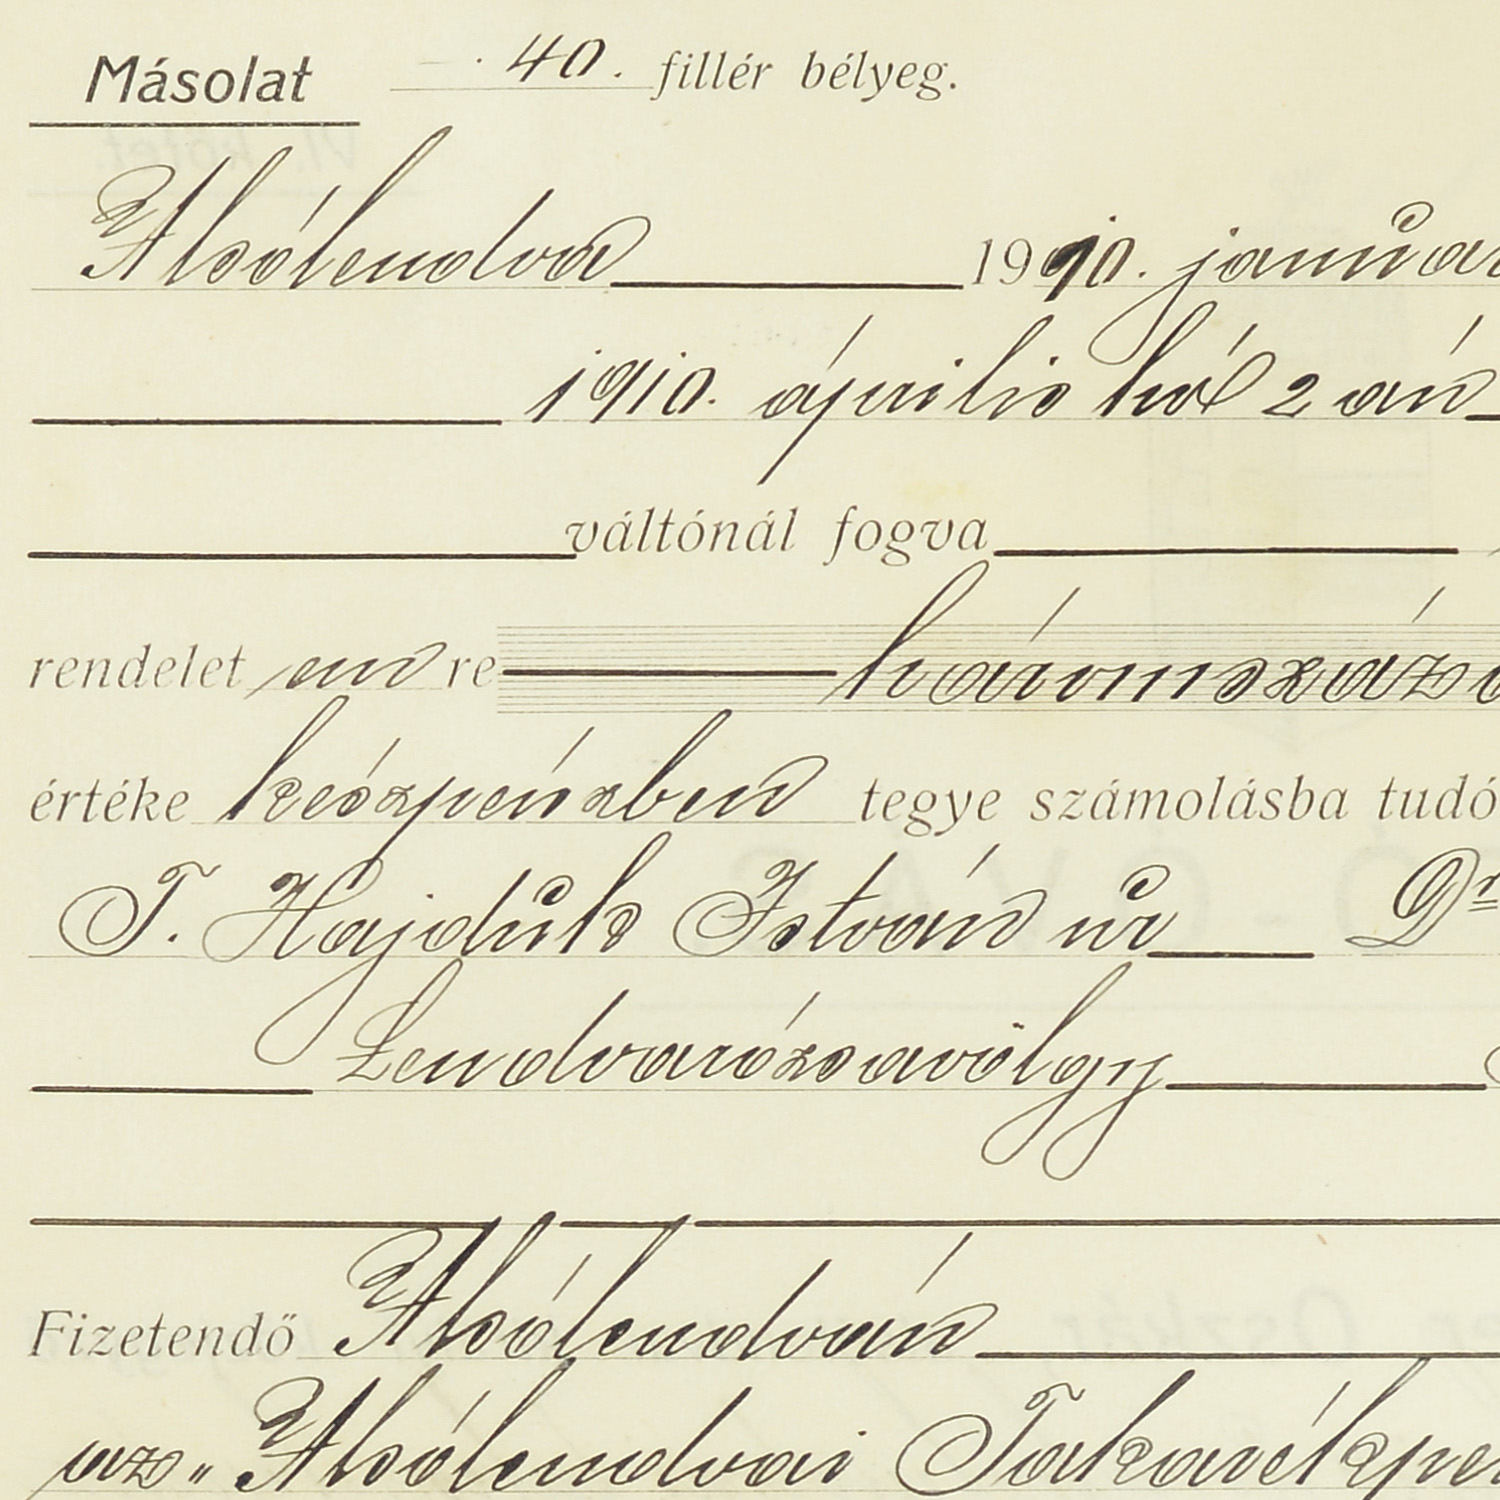 Másolat 40. fillér bélyeg.
Alsólendva 1910. január
1910. április hó 2 án
váltónál fogva
rendelet em re háromszáz
értéke készpénzben tegye számolásba tudó
T. Hajduk István úr Dr
Lendvarózsavölgy
Fizetendő Alsólendván
az „Alsólendvai Takarékpén